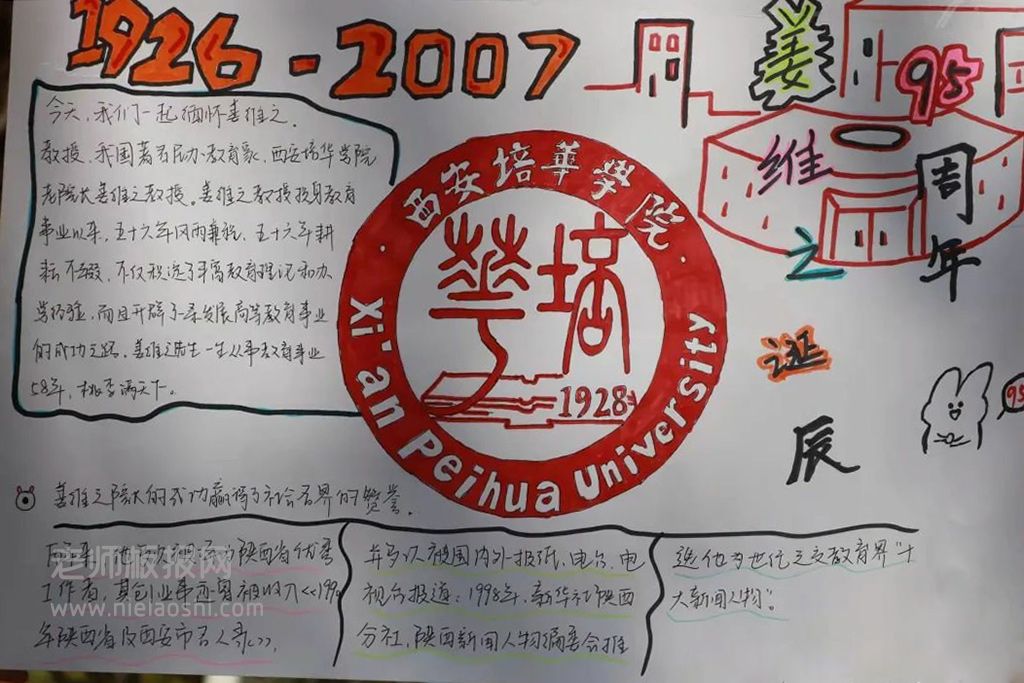 1926-2007
姜
维
之
诞
辰
95
周
年
今天，我们一起缅怀姜维之
教授，我国著名民办教育家，西安培华学院
老院长姜维之教授。姜维之教授投身教育
事业以来，五十六年风雨兼程，五十六年耕
耘不辍，不仅积淀了丰富教育理论和办
学经验，而且开辟了一条发展高等教育事业
的成功之路，姜维之先生一生从事教育事业
58年，桃李满天下。
西安培華學院
華培
1928
Xi'an Peihua University
95
姜维之院长的成功赢得了社会各界的赞誉。
陕西省优秀
工作者，其创业事迹曾被收入<<199
年陕西省及西安市名人录>>，
并多次被国内外报纸、电台、电
视台报道；1998年，新华社陕西
分社，陕西新闻人物编委会推
选他为世纪之交教育界“十
大新闻人物”。
老师板报网
www.nielaoshi.com